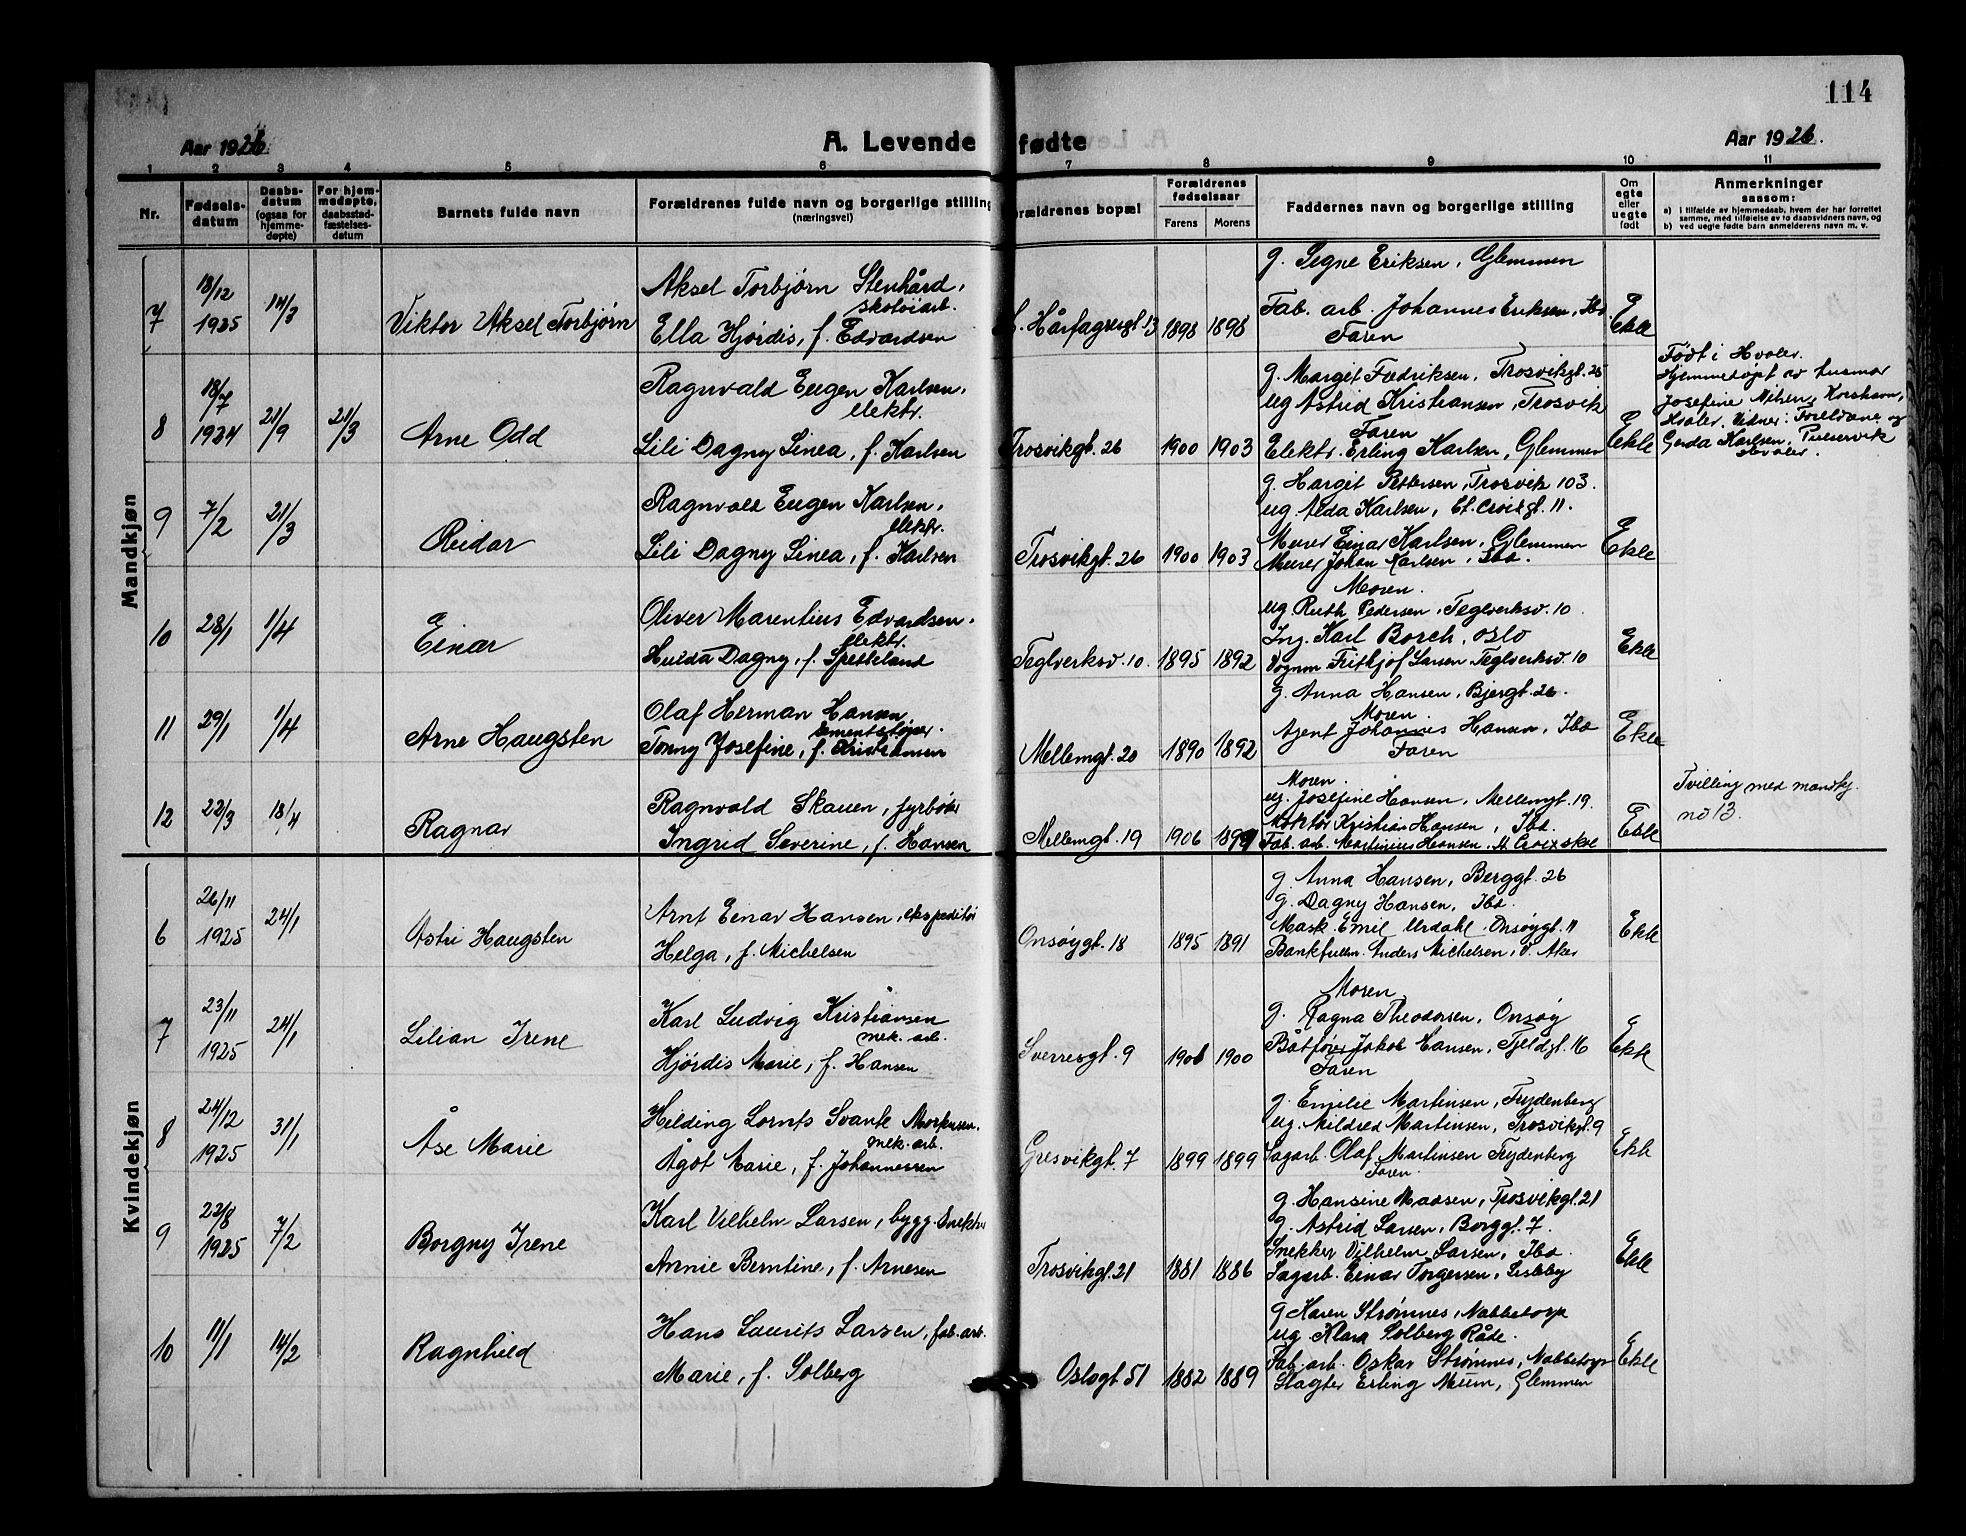 114
Aar 1926.
A. Levende fødte
Aar 1926.
1 2 3 4 5 6 7 8 9 10 11
Nr.
Fødsels-
datum
Daabs-
datum
(ogsaa for
hjemme-
døpte)
For hjem-
medøpte,
daabsstad-
fæstelses-
datum
Barnets fulde navn
Forældrenes fulde navn og borgerlige stilling
(næringsvei)
orældrenes bopæl
Forældrenes
fødselsaar
Farens Morens
Faddernes navn og borgerlige stilling
Om
egte
eller
uegte
født
Anmerkninger
saasom:
a) i tilfælde av hjemmedaab, hvem der har forrettet
samme, med tilføielse av to daabsvidners navn, og
b) ved uegte fødte barn anmelderens navn m. v.
Mandkjøn
7
18/12
1925
14/3
Viktor Aksel Torbjørn
Aksel Torbjørn Stenhård,
skotøiarb.
Ella Hjørdis, f. Edvardsen
Hårfagresgt 13
1898 1898
g. Signe Eriksen, Glemmen
Fab. arb. Johannes Eriksen, Ibd.
Faren
Ekte
8
18/7
1924
21/9
21/3
Arne Odd
Ragnvald Eugen Karlsen,
elektr.
Lili Dagny Linea, f. Karlsen
Trosvikgt. 26
1900 1903
g. Margit Fredriksen, Trosvikgt. 25
ug Astrid Kristiansen, Trosvik
Faren
Elektr. Erling Karlsen, Glemmen
Ekte
Født i Hvaler.
Hjemmedøpt av husmor
Josefine Nilsen, Korshavn,
Hvaler. Vidner: Foreldrene og
Gerda Karlsen,
Hvaler.
9
7/2
21/3
Reidar
Ragnvald Eugen Karlsen,
elektr.
Lili Dagny Linea, f. Karlsen
Trosvikgt. 26
1900 1903
g. Margit Pettersen, Trosvik 103.
ug. Alda Karlsen, St. Croixgt. 11.
Murer Einar Karlsen, Glemmen
Murer Johan Karlsen, Ibd.
Ekte
10
28/1
1/4
Einar
Oliver Marentius Edvardsen,
elektr.
Hulda Dagny, f. Spetteland
Teglverksv. 10.
1895 1892
Moren.
ug Ruth Pedersen, Teglverksv. 10.
Ing. Karl Borch, Oslo
Vognm Fritjof Larsen Teglverksv. 10
Ekte
11
29/1
1/4
Arne Haugsten
Olaf Herman Hansen
sementstøper.
Tonny Josefine, f. Kristiansen
Mellemgt. 20
1890 1892
g. Anna Hansen, Bjergt. 26.
Moren.
Agent Johannes Hansen, Ibd
Faren
Ekte
12
22/3
18/4
Ragnar
Ragnvald Skauen, fyrbøter
Ingrid Severine, f. Hansen
Mellemgt. 19
1906 1899
Moren.
ug. Josefine Hansen, Mellemgt. 19.
Kristian Hansen, Ibd.
Fab. arb. Martinius Hansen, St Croix skole
Ekte
Tvilling med mandkj.
no 13.
Kvindekjøn
6
26/11
1925
24/1
Astri Haugsten
Arnt Einar Hansen, ekspeditør
Helga, f. Michelsen
Onsøygt. 18
1895 1891
g. Anna Hansen, Berggt. 26
g. Dagny Hansen, Ibd.
Mask. Emil Urdahl. Onsøygt. 11
Bankfullm. Anders Michelsen, V. Aker
Ekte
7
23/11
1925
24/1
Lilian Irene
Karl Ludvig Kristiansen
mek. arb.
Hjørdis Marie, f. Hansen
Sverresgt. 9
1901 1900
Moren
g. Ragna Theodorsen, Onsøy
Båtfører Jakob Hansen, Fjeldgt. 16
Faren
Ekte
8
24/12
1925
31/1
Åse Marie
Hilding Lornts Svante Morkusen.
mek. arb.
Ågot Marie, f. Johannessen
Gresvikgt. 7
1899 1899
g. Emilie Martinsen, Frydenberg
ug. Mildred Martinsen, Trosvikgt. 9
Sagarb. Olaf Martinsen Frydenberg
Faren.
Ekte
9
22/8
1925
7/2
Borgny Irene
Karl Vilhelm Larsen, bygg. snekker
Annie Berntine, f. Arnesen
Trosvikgt. 21
1881 1886
g. Hansine Madsen, Trosvikgt. 21
g. Astrid Larsen, Borggt. 7.
Snekker Vilhelm Larsen, Ibd.
Sagarb. Einar Torgersen, Lisleby
Ekte
10
11/1
14/2
Ragnhild
Hans Laurits Larsen, fab. arb.
Marie, f. Solberg
Oslogt 51
1882 1889
g Karen Strømnes, Nabbetorp
ug. Klara Solberg Råde.
Fab. arb. Oskar Strømnes, Nabbetorp
Slagter Erling Muum, Glemmen
Ekte